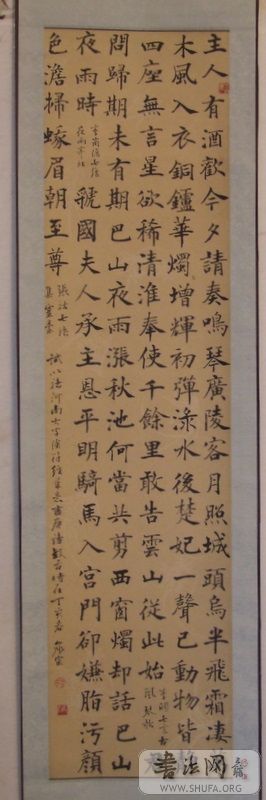 主人有酒歡今夕請奏鳴琴廣陵客月照城頭烏半飛霜淒萬
木風入衣銅鑪華燭增輝初彈淥水後楚妃一聲已動物皆靜
四座無言星欲稀清淮奉使千餘里敢告雲山從此始
君
問歸期未有期巴山夜雨漲秋池何當共剪西窗燭却話巴山
夜雨時
李商隱七絕
夜雨寄北
虢國夫人承主恩平明騎馬入宮門卻嫌脂污顏
色澹掃蛾眉朝至尊
張祜七絕
集靈臺
书法网
WWW.SHUFA.ORG